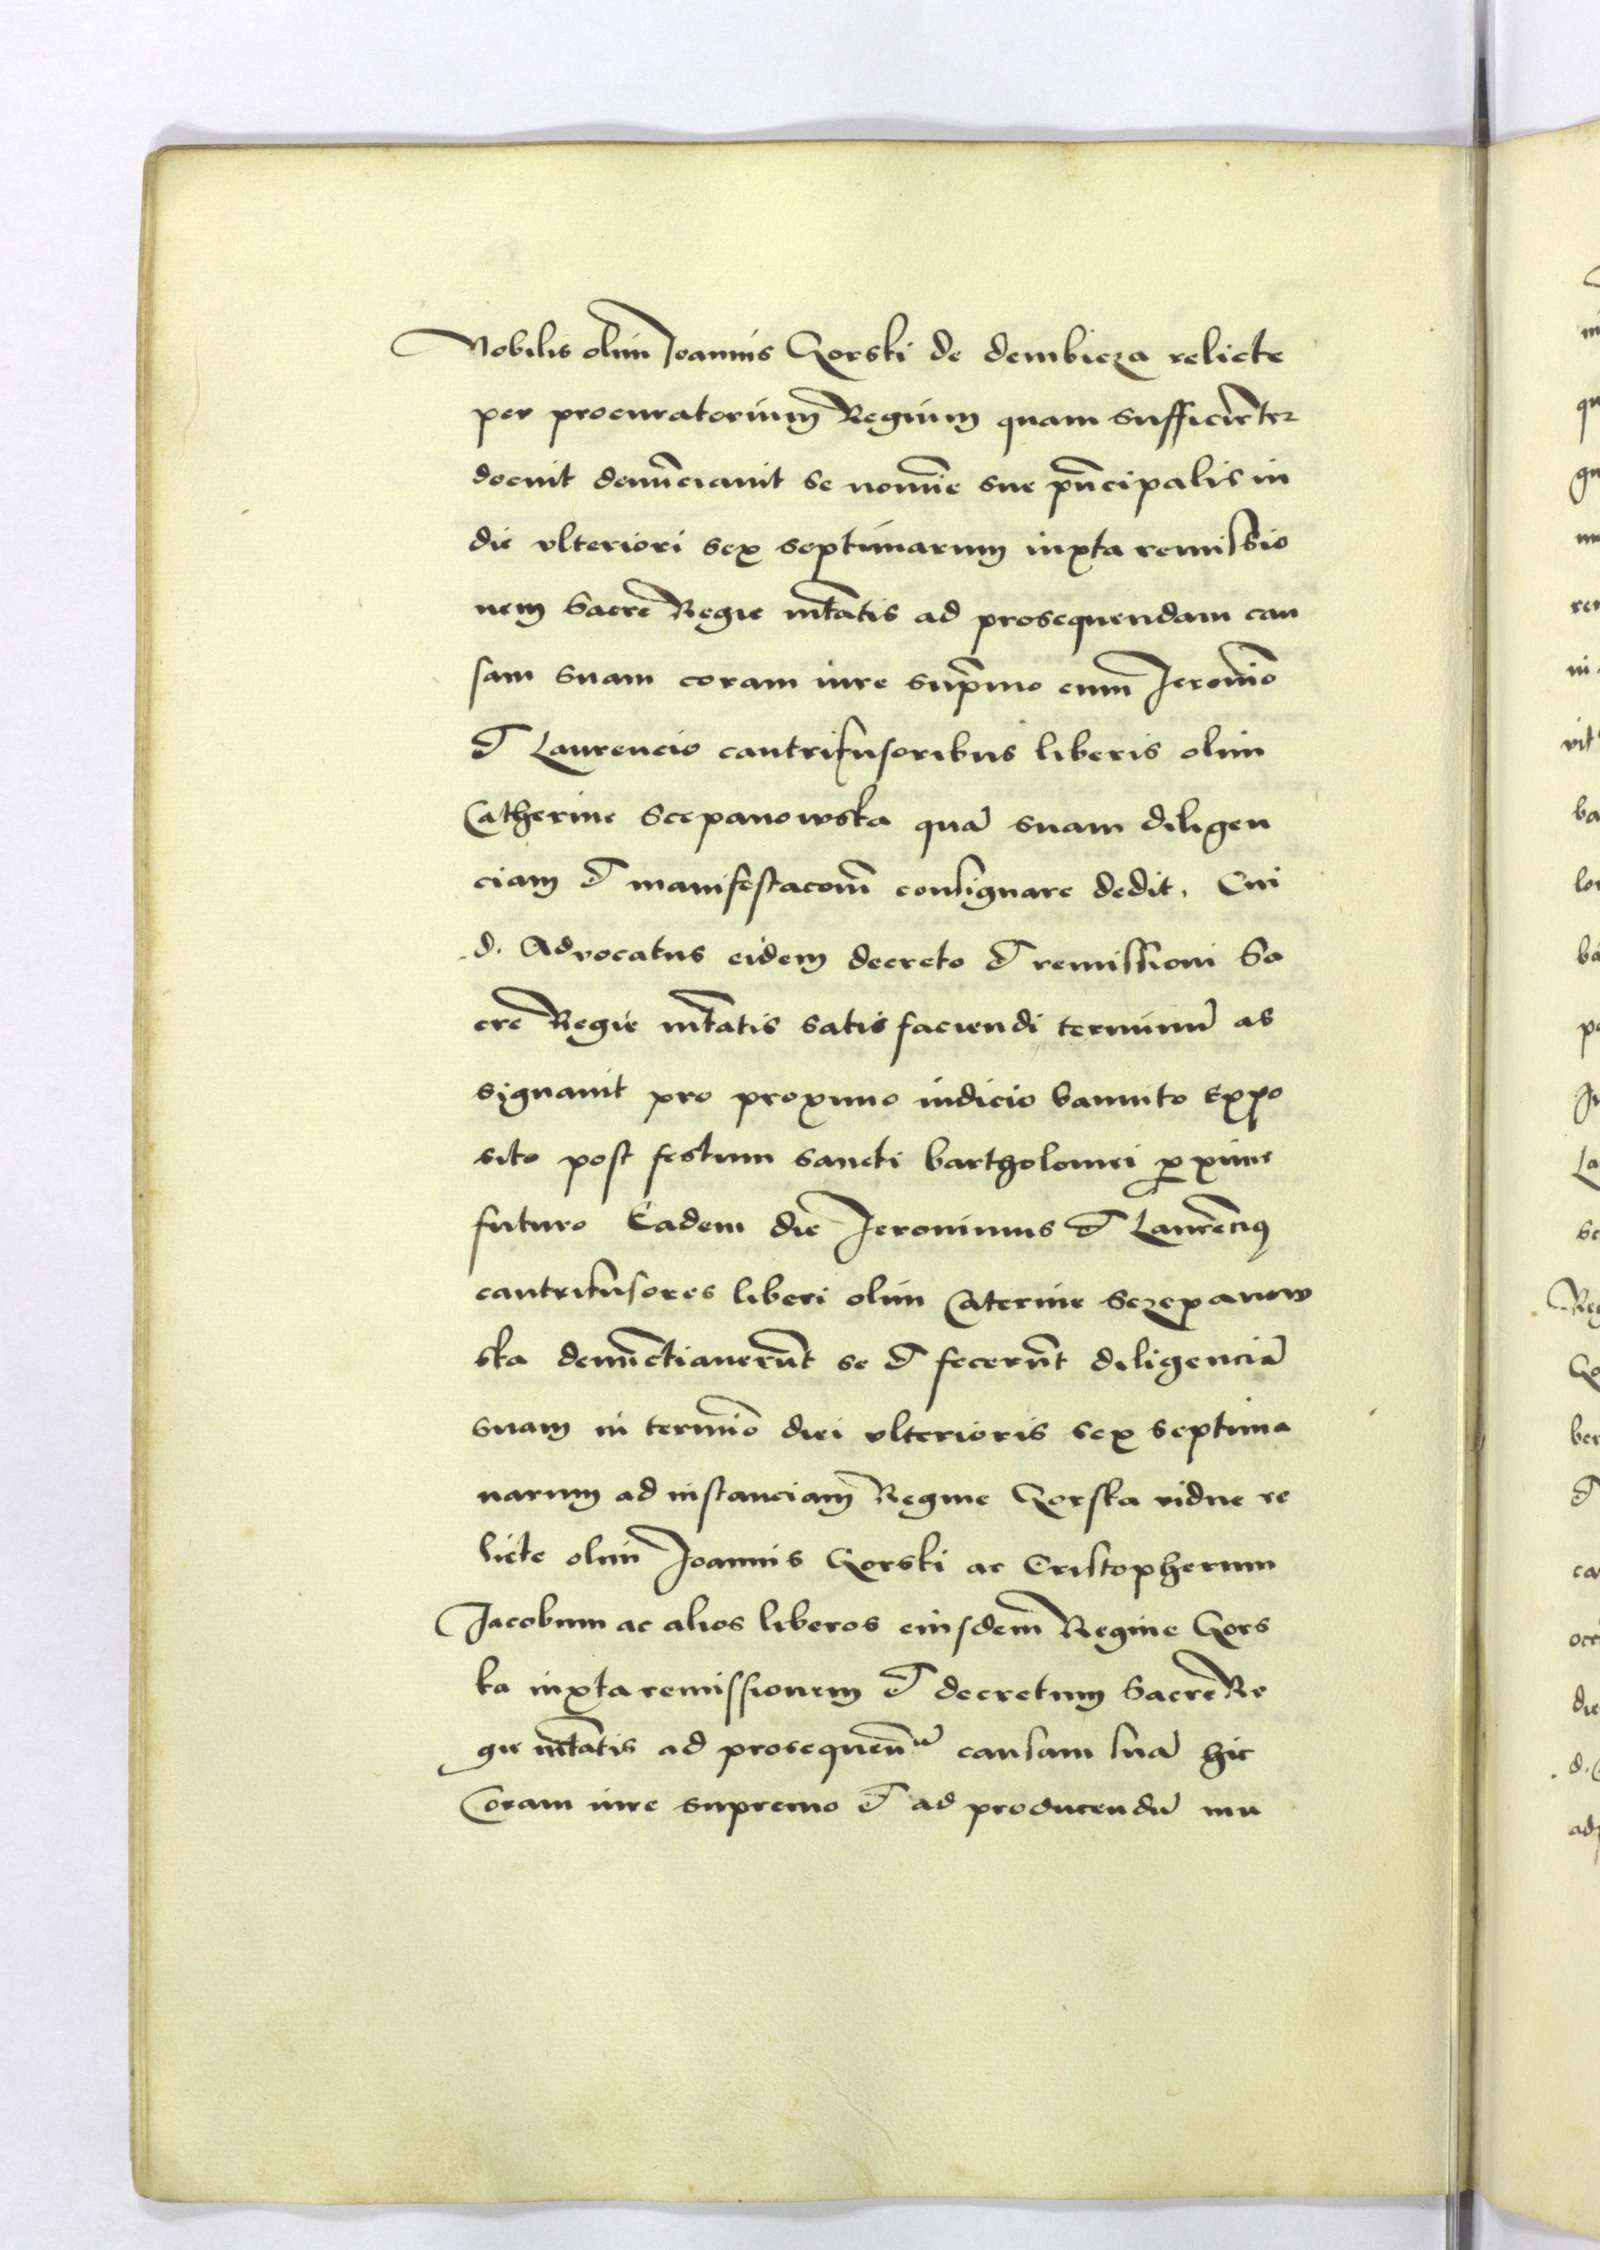 Nobilis olim Joannis Gorski de dembicza relicte
per procuratorium Regium quam sufficienter
docuit denunciauit se nomine sue principalis in
die vlteriori sex septimarum iuxta remissio
nem Sacre Regie mtatis ad prosequendam cau
sam suam coram iure supremo cum Jeronimo
et Laurencio cantrifusoribus liberis olim
Catherine Scepanowska quam suam diligen
ciam et manifestacom consignare dedit. Cui
d. Advocatus eidem decreto et remissioni Sa
cre Regie mtatis satisfaciendi terminum as
signauit pro proximo iudicio bannito expo
sito post festum sancti bartholomei proxime
futuro Eadem die Jeronimus et Laurencius
cantrifusores liberi olim Caterine Sczepanow
ska denunctiauerunt se et fecerunt diligenciam
suam in termino diei vlterioris sex septima
narum ad instanciam Regine Gorska vidue re
licte olim Joannis Gorski ac Cristopherum
Jacobum ac alios liberos eiusdem Regine Gors
ka iuxta remissionem et decretum Sacre Re
gie mtatis ad prosequen causam suam hic
Coram iure supremo et ad producendum mu